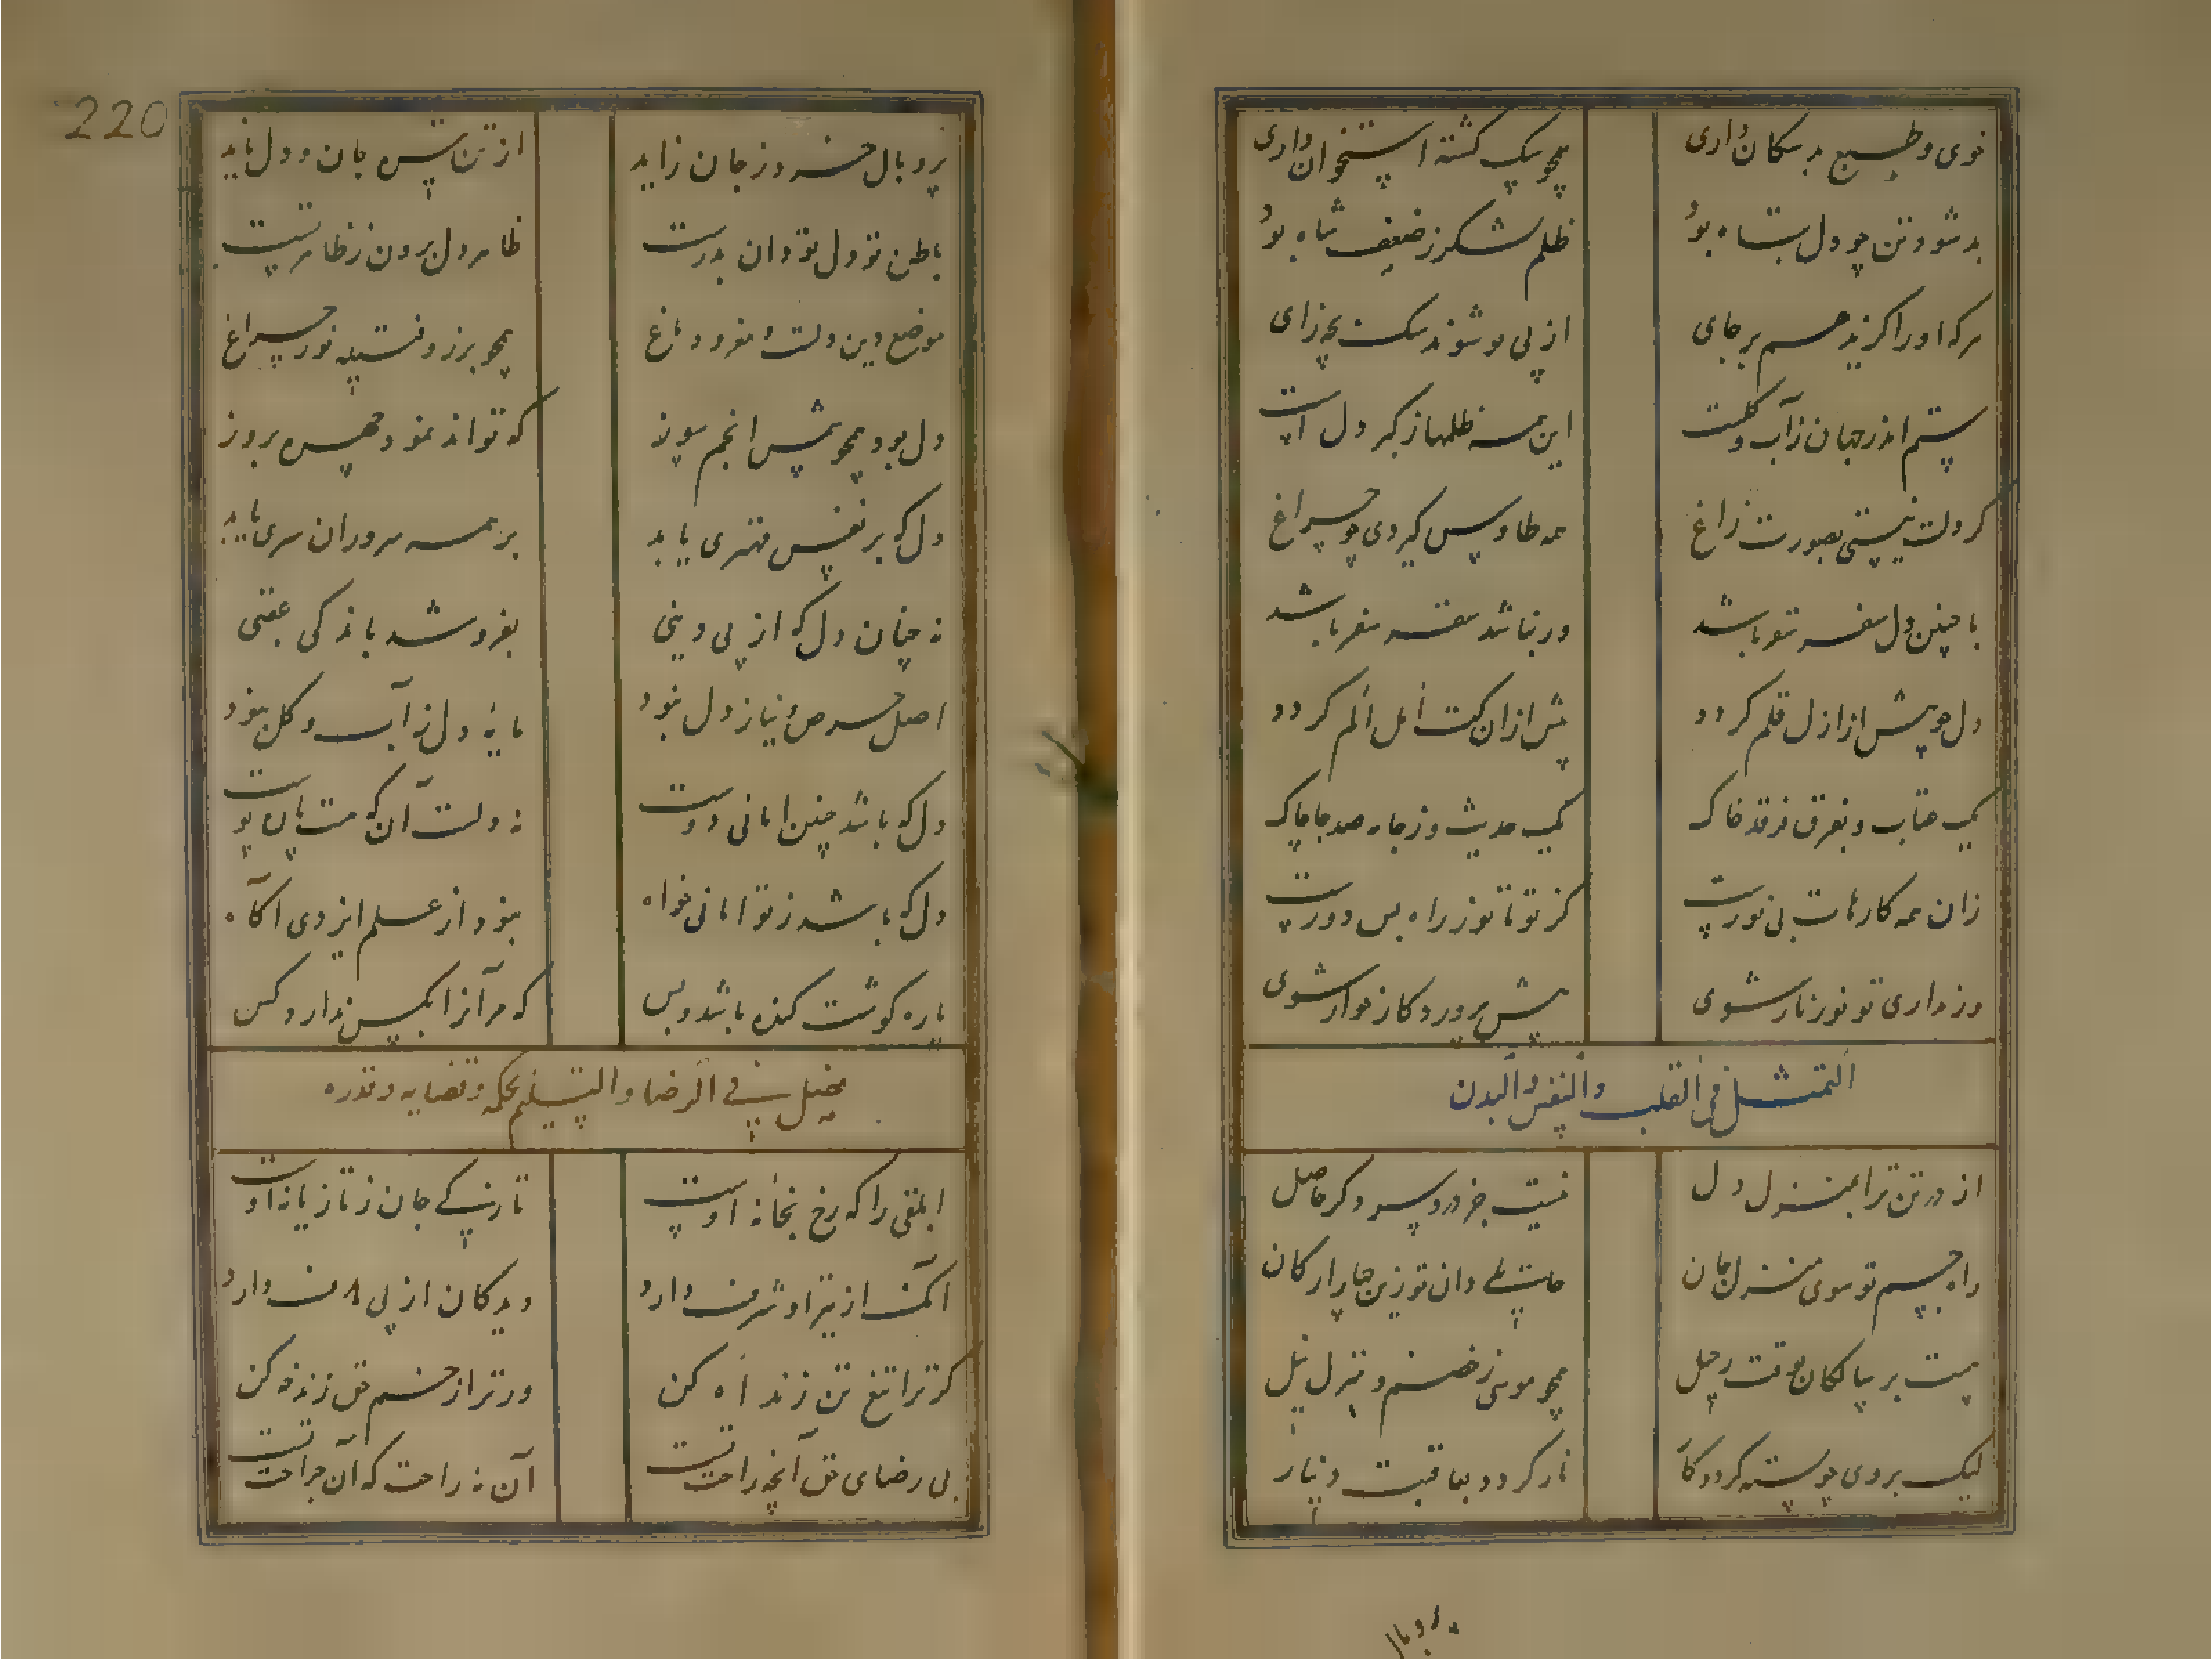 خوی و طبع بد سکان داری همچو سک کشته استخوان داری
بد شود تن چو دل تباه بود ظلم لشکر ز ضعف شاه بود
هرکه او را کزید هم بر جای از پی او شوند سک بچه زای
ستم اندر جهان ز آب و کلست این همه ظلمها ز کبر دلست
کر دلت نیستی بصورت زاغ همه طاوس کیردی چو چراغ
با چنین دل سفه سقر باشد ور نباشد سفه سقر باشد
دل چو پیش از ازل قلم کردد پیش از آن کت امل الم کردد
یک خطاب و بفرق فرقد خاک یک حدیث و ز جامه صد جا چاک
زان همه کارهات بی نورست کز تو تا نور راه بس دورست
ور نداری تو نور نار شوی پیش پروردکار خوار شوی
التمثیل فی القلب والنفس والبدن
از در تن ترا بمنزل دل نیست جز درد سر دکر حاصل
راه جسم تو سوی منزل جان دان تو زین چار ارکان
هست بر سالکان بوقت رحیل همچو موسی ز خصم و منزل نیل
لیک بروی چو بسته کردد کار نار کردد بعاقبت دینار
پر و بال
220
پر و بال خرد ز جان زاید از تن تیره جان و دل ناید
باطن تو دل تو دان بدرست ظاهر دل برون ز ظاهر تست
موضع دین دلست و مغز دماغ همچو برزو فتیله نور چراغ
دل بود همچو شمس انجم سوز که تواند نمود چهره بروز
دل که بر نفس مهتری یابد بر همه سروران سری یابد
نه چنان دل که از پی دینی بفروشد باندکی عقبی
اصل حرص و نیاز دل نبود مایه دل ز آب و کل نبود
دل که باشد چنین امانی دوست نه دلست آن که هست پاره پوست
دل که باشد ز تو امانی خواه نبود از علم ایزدی اکاه
پاره کوشت کنده باشد و بس که مر آنرا بکس ندارد کس
تمثیل فی الرضا و التسلیم بحکمه و قضایه و قدره
ابلقی را که رخ بخانه اوست تارکی جان ز تازیانه اوست
آنک از تیر او شرف دارد دیدکان از پی هدف دارد
کر ترا تیغ تن زند اه کن ور ترا زخم حق زند خه کن
بی رضای حق آنچه راحت تست آن نه راحت که آن جراحت تست